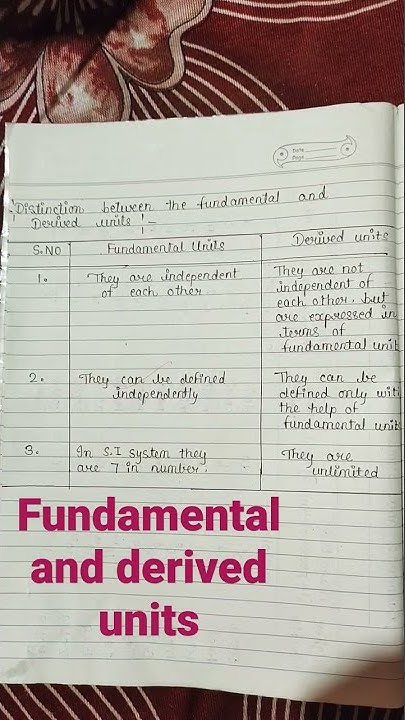 Date
Page
Distinction between the fundamental and
Derived units :-
S.NO Fundamental Units Derived units
1. They are independent of each other. They are not independent of each other. but are expressed in terms of fundamental unit
2. They can be defined independently They can be defined only wit the help of fundamental unit
3. In S.I system they are 7 in number. They are unlimited
Fundamental
and derived
units